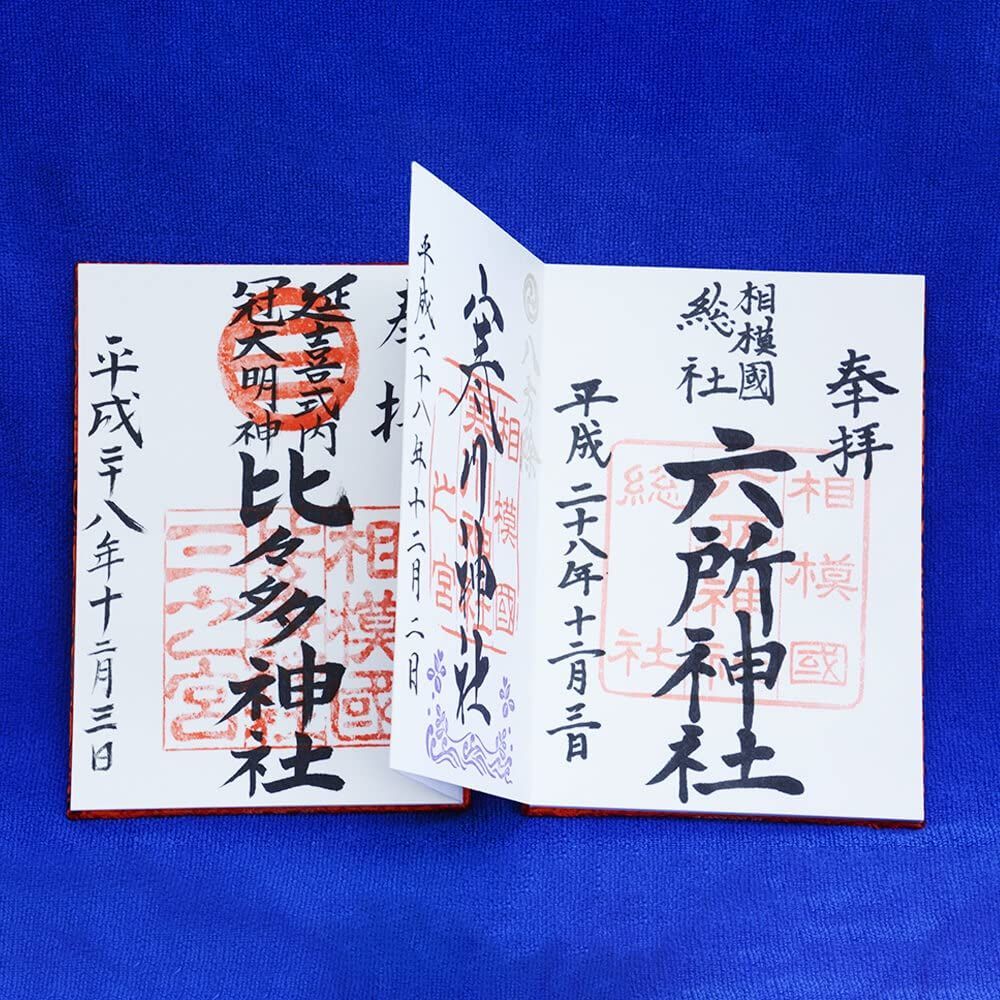 奉拝
相模國
総社
六所神社
平成二十八年十二月三日
相模國
六所神社
総社
寒川神社
平成二十八年十二月二日
相模國
一之宮
奉拝
延喜式内
冠大明神
比々多神社
平成二十八年十二月三日
相模國
三之宮